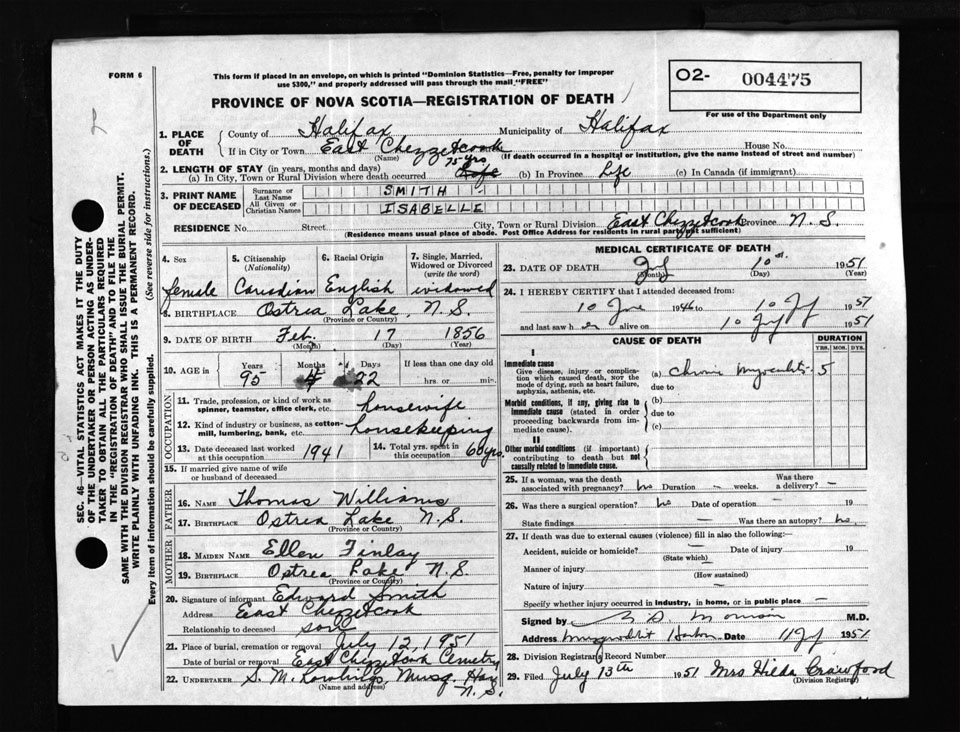 FORM 6
This form if placed in an envelope, on which is printed "Dominion Statistics—Free, penalty for improper
use $300," and properly addressed will pass through the mail "FREE"
O2- 004475
For use of the Department only
PROVINCE OF NOVA SCOTIA—REGISTRATION OF DEATH
1. PLACE OF DEATH County of Halifax Municipality of Halifax
If in City or Town East Chezzetcook House No.
(Name) (If death occurred in a hospital or institution, give the name instead of street and number)
2. LENGTH OF STAY (in years, months and days) 75 yrs
(a) In City, Town or Rural Division where death occurred Life (b) In Province Life (c) In Canada (if immigrant)
3. PRINT NAME OF DECEASED Surname or Last Name SMITH
All Given or Christian Names ISABELLE
RESIDENCE No. Street City, Town or Rural Division East Chezzetcook Province N. S.
(Residence means usual place of abode. Post Office Address for residents in rural parts not sufficient)
4. Sex female
5. Citizenship (Nationality) Canadian
6. Racial Origin English
7. Single, Married, Widowed or Divorced (write the word) widowed
8. BIRTHPLACE Ostrea Lake, N. S.
(Province or Country)
9. DATE OF BIRTH Feb. 17 1856
(Month) (Day) (Year)
10. AGE in Years 95 Months 4 Days 22 If less than one day old hrs. or min.
OCCUPATION
11. Trade, profession, or kind of work as spinner, teamster, office clerk, etc. housewife
12. Kind of industry or business, as cotton-mill, lumbering, bank, etc. housekeeping
13. Date deceased last worked at this occupation 1941
14. Total yrs. spent in this occupation 60 yrs.
15. If married give name of wife or husband of deceased
FATHER
16. NAME Thomas Williams
17. BIRTHPLACE Ostrea Lake N. S.
(Province or Country)
MOTHER
18. MAIDEN NAME Ellen Finlay
19. BIRTHPLACE Ostrea Lake N. S.
(Province or Country)
20. Signature of informant Edward Smith
Address East Chezzetcook
Relationship to deceased son
21. Place of burial, cremation or removal July 12, 1951
Date of burial or removal East Chezzetcook Cemetry
22. UNDERTAKER S. M. Rowlings, Musq. Har N. S.
(Name and address)
MEDICAL CERTIFICATE OF DEATH
23. DATE OF DEATH July 10th 1951
(Month) (Day) (Year)
24. I HEREBY CERTIFY that I attended deceased from:
10 June 1946 to 10 July 1951
and last saw her alive on 10 July 1951
CAUSE OF DEATH DURATION
YRS. MOS. DYS.
I
Immediate cause
Give disease, injury or complication which caused death, not the mode of dying, such as heart failure, asphyxia, asthenia, etc.
(a) Chronic myocarditis 5
due to
Morbid conditions, if any, giving rise to immediate cause (stated in order proceeding backwards from immediate cause).
(b)
due to
(c)
II
Other morbid conditions (if important) contributing to death but not causally related to immediate cause.
25. If a woman, was the death associated with pregnancy? no Duration – weeks. Was there a delivery? –
26. Was there a surgical operation? no Date of operation – 19
State findings – Was there an autopsy? no.
27. If death was due to external causes (violence) fill in also the following:
Accident, suicide or homicide? – Date of injury 19
(State which)
Manner of injury
(How sustained)
Nature of injury –
Specify whether injury occurred in industry, in home, or in public place –
Signed by M.D.
Address Musquodoboit Harbour Date 11 July 1951
28. Division Registrar's Record Number
29. Filed July 13th 1951 Mrs Hilda Crawford
(Division Registrar)
SEC. 46—VITAL STATISTICS ACT MAKES IT THE DUTY
OF THE UNDERTAKER OR PERSON ACTING AS UNDER-
TAKER TO OBTAIN ALL THE PARTICULARS REQUIRED
IN THE "REGISTRATION OF DEATH" AND TO FILE THE
SAME WITH THE DIVISION REGISTRAR WHO SHALL ISSUE THE BURIAL PERMIT.
WRITE PLAINLY WITH UNFADING INK. THIS IS A PERMANENT RECORD.
Every item of information should be carefully supplied. (See reverse side for instructions.)